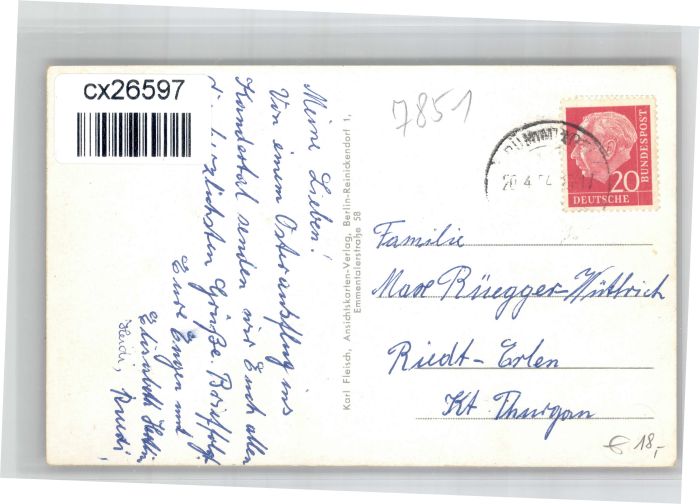 cx26597
7851
Meine Lieben!
Von einem Osterausflug ins
Kandertal senden wir Euch allen
d. herzlichsten Grüße. Brief folgt
Eure Eugen und
Elisabeth
Heidi, Ruedi
Karl Fleisch, Ansichtskarten-Verlag, Berlin-Reinickendorf 1,
Emmentalerstraße 58
20.4.54
20
DEUTSCHE
BUNDESPOST
Familie
Max Rüegger-Wüttrich
Riedt-Erlen
Kt. Thurgau
€ 18,-